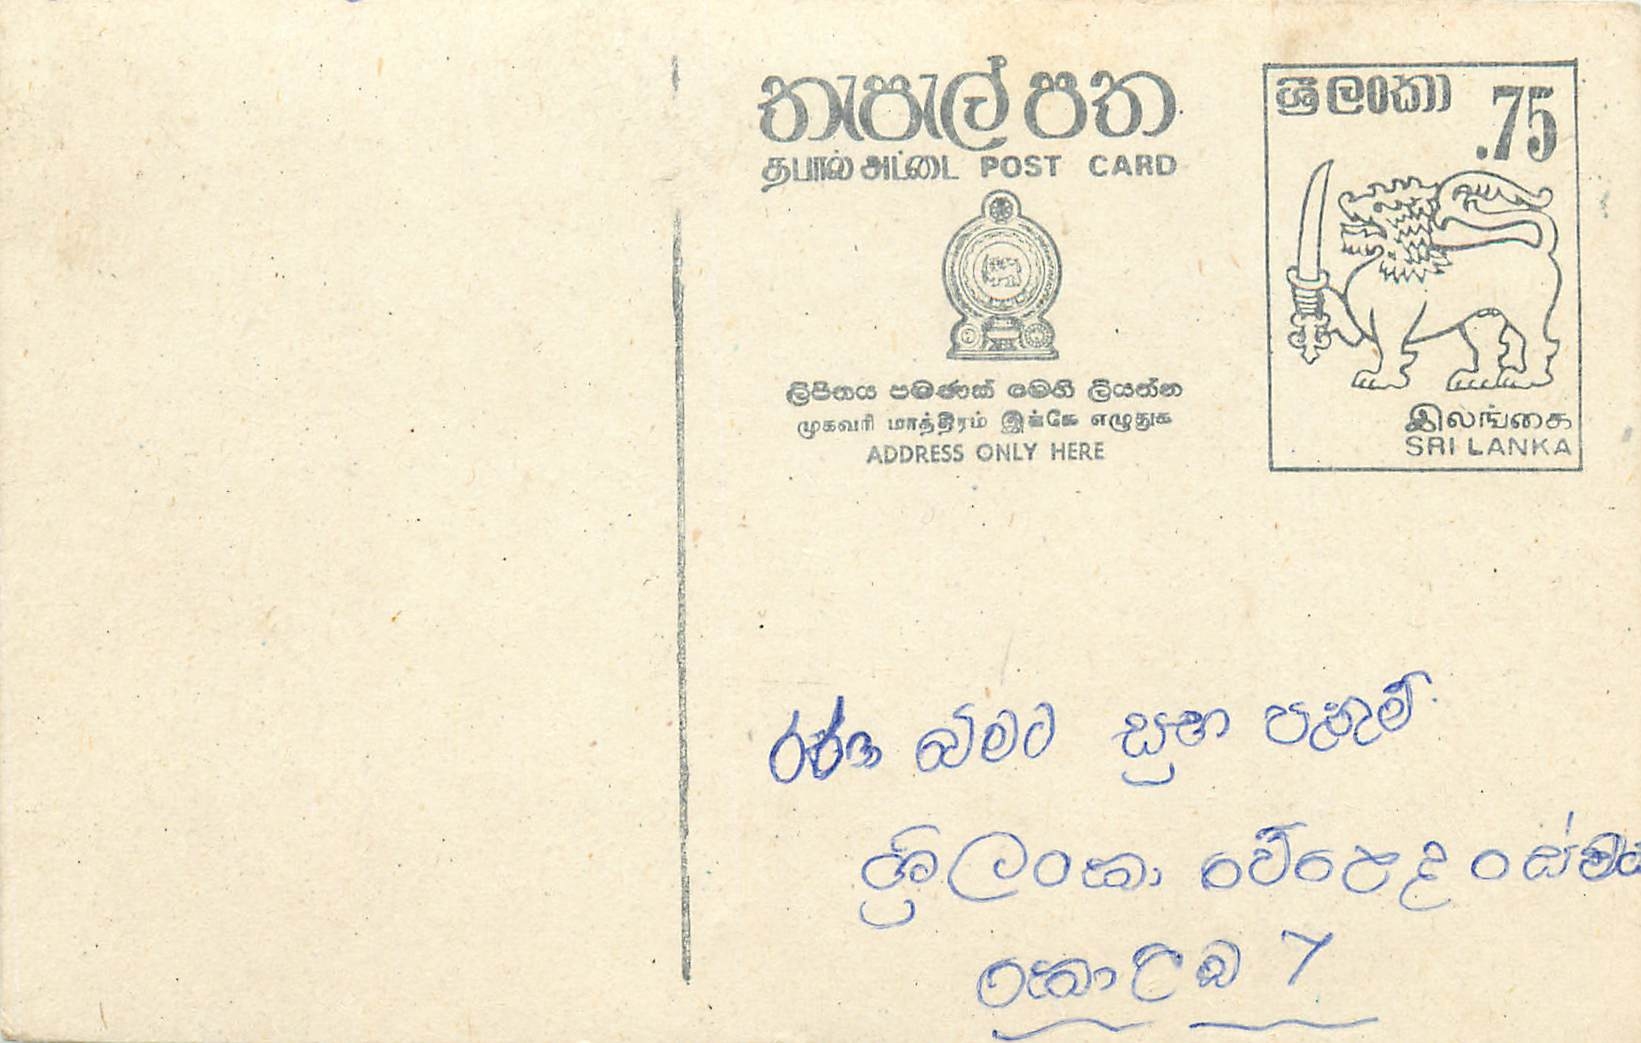 තැපැල් පත
தபால் அட்டை POST CARD
ලිපිනය පමණක් මෙහි ලියන්න
முகவரி மாத்திரம் இங்கே எழுதுக
ADDRESS ONLY HERE
ශ්‍රී ලංකා .75
இலங்கை
SRI LANKA
බිමට සුභ පැතුම්
ශ්‍රී ලංකා වෙළෙඳ සේවය
කොළඹ 7